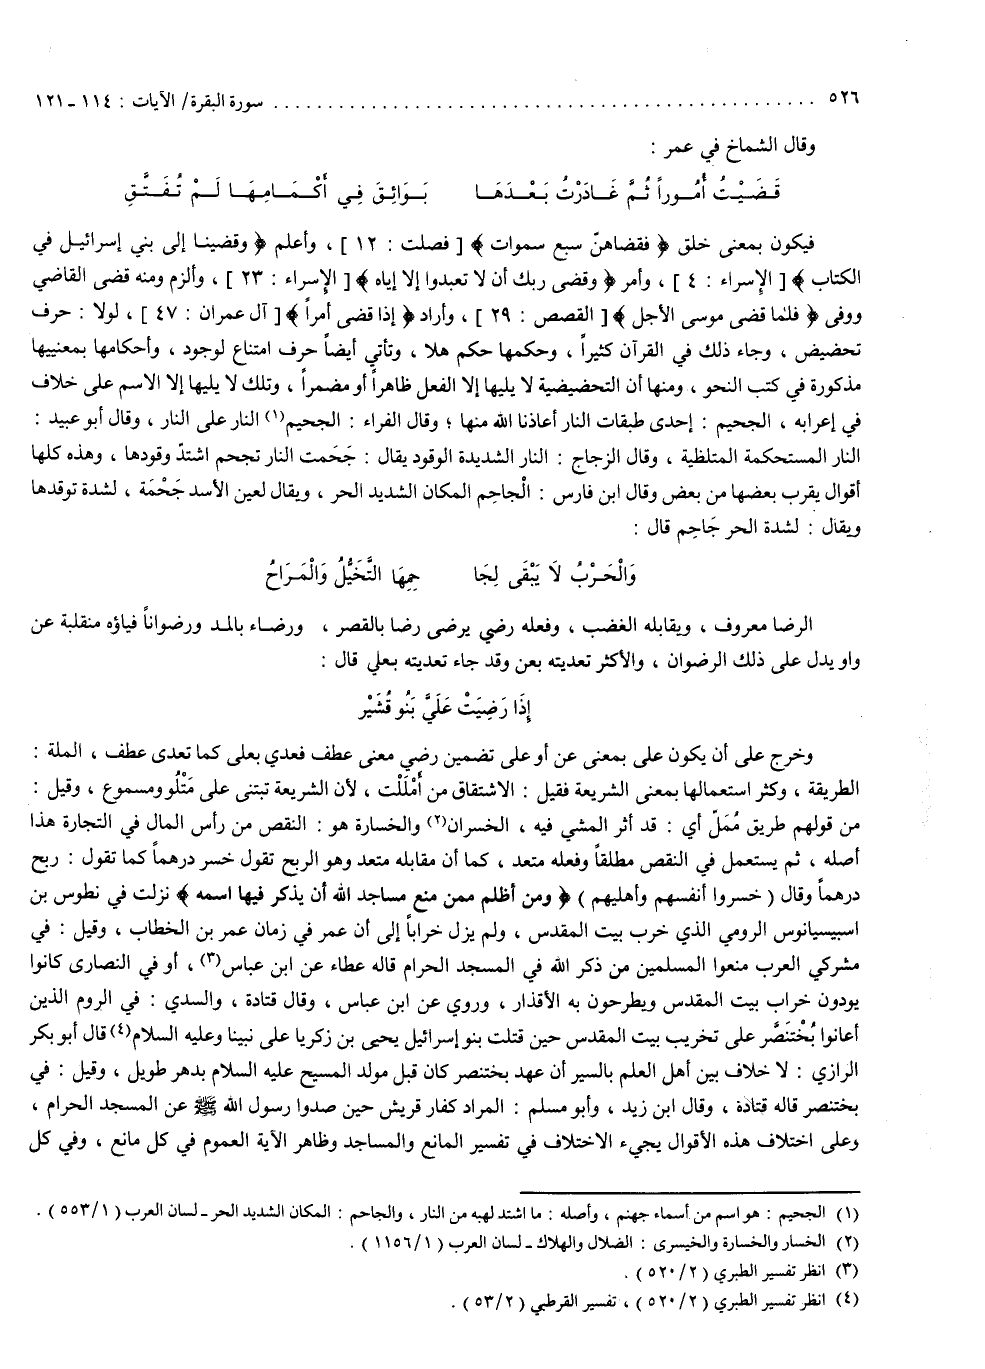 ٥٢٦ ........................................ سورة البقرة/ الآيات : ١١٤ ـ ١٢١
وقال الشماخ في عمر :
قَضَيْتُ أُمُوراً ثُمَّ غَادَرْتُ بَعْدَهَا بَوَائِقَ فِي أَكْمَامِهَا لَمْ تُفَتَّقِ
فيكون بمعنى خلق ﴿ فقضاهنّ سبع سموات ﴾ [ فصلت : ١٢ ] ، وأعلم ﴿ وقضينا إلى بني إسرائيل في
الكتاب ﴾ [ الإسراء : ٤ ] ، وأمر ﴿ وقضى ربك أن لا تعبدوا إلا إياه ﴾ [ الإسراء : ٢٣ ] ، وألزم ومنه قضى القاضي
ووفى ﴿ فلما قضى موسى الأجل ﴾ [ القصص : ٢٩ ] ، وأراد ﴿ إذا قضى أمراً ﴾ [ آل عمران : ٤٧ ] ، لولا : حرف
تحضيض ، وجاء ذلك في القرآن كثيراً ، وحكمها حكم هلا ، وتأتي أيضاً حرف امتناع لوجود ، وأحكامها بمعنييها
مذكورة في كتب النحو ، ومنها أن التحضيضية لا يليها إلا الفعل ظاهراً أو مضمراً ، وتلك لا يليها إلا الاسم على خلاف
في إعرابه ، الجحيم : إحدى طبقات النار أعاذنا الله منها ؛ وقال الفراء : الجحيم(١) النار على النار ، وقال أبو عبيد :
النار المستحكمة المتلظية ، وقال الزجاج : النار الشديدة الوقود يقال : جَحَمت النار تجحم اشتدّ وقودها ، وهذه كلها
أقوال يقرب بعضها من بعض وقال ابن فارس : الْجاحِم المكان الشديد الحر ، ويقال لعين الأسد جَحْمَة ، لشدة توقدها
ويقال : لشدة الحر جَاحِم قال :
وَالْحَرْبُ لَا يَبْقَى لِجَا حِمِهَا التَّخَيُّلُ وَالْمَرَاحُ
الرضا معروف ، ويقابله الغضب ، وفعله رضي يرضى رضا بالقصر ، ورضاء بالمد ورضواناً فياؤه منقلبة عن
واو يدل على ذلك الرضوان ، والأكثر تعديته بعن وقد جاء تعديته بعلي قال :
إِذَا رَضِيَتْ عَلَيَّ بَنُو قُشَيْر
وخرج على أن يكون على بمعنى عن أو على تضمين رضي معنى عطف فعدي بعلى كما تعدى عطف ، الملة :
الطريقة ، وكثر استعمالها بمعنى الشريعة فقيل : الاشتقاق من أَمْلَلْت ، لأن الشريعة تبتنى على مَتْلُو ومسموع ، وقيل :
من قولهم طريق مُمَلّ أي : قد أثر المشي فيه ، الخسران(٢) والخسارة هو : النقص من رأس المال في التجارة هذا
أصله ، ثم يستعمل في النقص مطلقاً وفعله متعد ، كما أن مقابله متعد وهو الربح تقول خسر درهماً كما تقول : ربح
درهماً وقال ( خسروا أنفسهم وأهليهم ) ﴿ ومن أظلم ممن منع مساجد الله أن يذكر فيها اسمه ﴾ نزلت في نطوس بن
اسبيسيانوس الرومي الذي خرب بيت المقدس ، ولم يزل خراباً إلى أن عمر في زمان عمر بن الخطاب ، وقيل : في
مشركي العرب منعوا المسلمين من ذكر الله في المسجد الحرام قاله عطاء عن ابن عباس(٣) ، أو في النصارى كانوا
يودون خراب بيت المقدس ويطرحون به الأقذار ، وروي عن ابن عباس ، وقال قتادة ، والسدي : في الروم الذين
أعانوا بُخْتَنَصَّر على تخريب بيت المقدس حين قتلت بنو إسرائيل يحيى بن زكريا على نبينا وعليه السلام(٤) قال أبو بكر
الرازي : لا خلاف بين أهل العلم بالسير أن عهد بختنصر كان قبل مولد المسيح عليه السلام بدهر طويل ، وقيل : في
بختنصر قاله قتادة ، وقال ابن زيد ، وأبو مسلم : المراد كفار قريش حين صدوا رسول الله ﷺ عن المسجد الحرام ،
وعلى اختلاف هذه الأقوال يجيء الاختلاف في تفسير المانع والمساجد وظاهر الآية العموم في كل مانع ، وفي كل
(١) الجحيم : هو اسم من أسماء جهنم ، وأصله : ما اشتد لهبه من النار ، والجاحم : المكان الشديد الحر ـ لسان العرب ( ٥٥٣/١ ) .
(٢) الخسار والخسارة والخيسرى : الضلال والهلاك ـ لسان العرب ( ١١٥٦/١ ) .
(٣) انظر تفسير الطبري ( ٥٢٠/٢ ) .
(٤) انظر تفسير الطبري ( ٥٢٠/٢ ) ، تفسير القرطبي ( ٥٣/٢ ) .